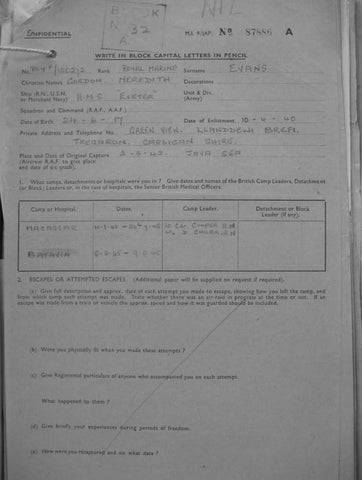 B. JK NIL
N 32
A
CONFIDENTIAL M.I. 9/JAP. No 87886 A
WRITE IN BLOCK CAPITAL LETTERS IN PENCIL
No. Rank ROYAL MARINE Surname EVANS
Christian Names GORDON. MEREDITH Decorations
Ship (R.N., U.S.N. or Merchant Navy) H.M.S. EXETER Unit & Div. (Army)
Squadron and Command (R.A.F., A.A.F.)
Date of Birth 24-6-17 Date of Enlistment 10-4-40
Private Address and Telephone No. GREEN VIEW. LLANDDEWI BREFI.
TREGARON. CARDIGAN SHIRE.
Place and Date of Original Capture 2-3-42. JAVA SEA
(Aircrew R.A.F. to give place and date of a/c crash).
1. What camps, detachments or hospitals were you in? Give dates and names of the British Camp Leaders, Detachment (or Block) Leaders or, in the case of hospitals, the Senior British Medical Officers.
Camp or Hospital. Dates. Camp Leader. Detachment or Block Leader (if any).
MACASSAR COOPER R.N
R.N
BATAVIA
2. ESCAPES OR ATTEMPTED ESCAPES. (Additional paper will be supplied on request if required).
(a) Give full description and approx. date of each attempt you made to escape, showing how you left the camp, and from which camp each attempt was made. State whether there was an air-raid in progress at the time or not. If an escape was made from a train or vehicle the approx. speed and how it was guarded should be included.
(b) Were you physically fit when you made these attempts?
(c) Give Regimental particulars of anyone who accompanied you on each attempt.
What happened to them?
(d) Give briefly your experiences during periods of freedom.
(e) How were you recaptured and on what date?